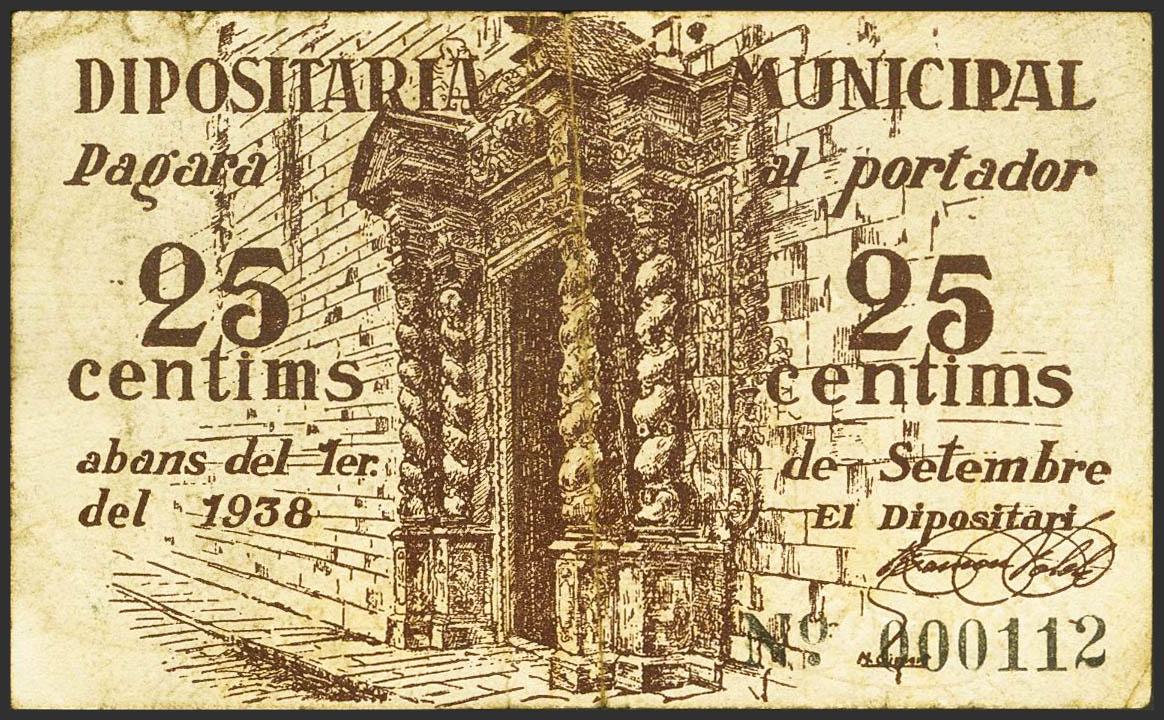 DIPOSITARIA MUNICIPAL
Pagarà al portador
25 25
centims centims
abans del 1er. de Setembre
del 1938 El Dipositari
Nº 000112